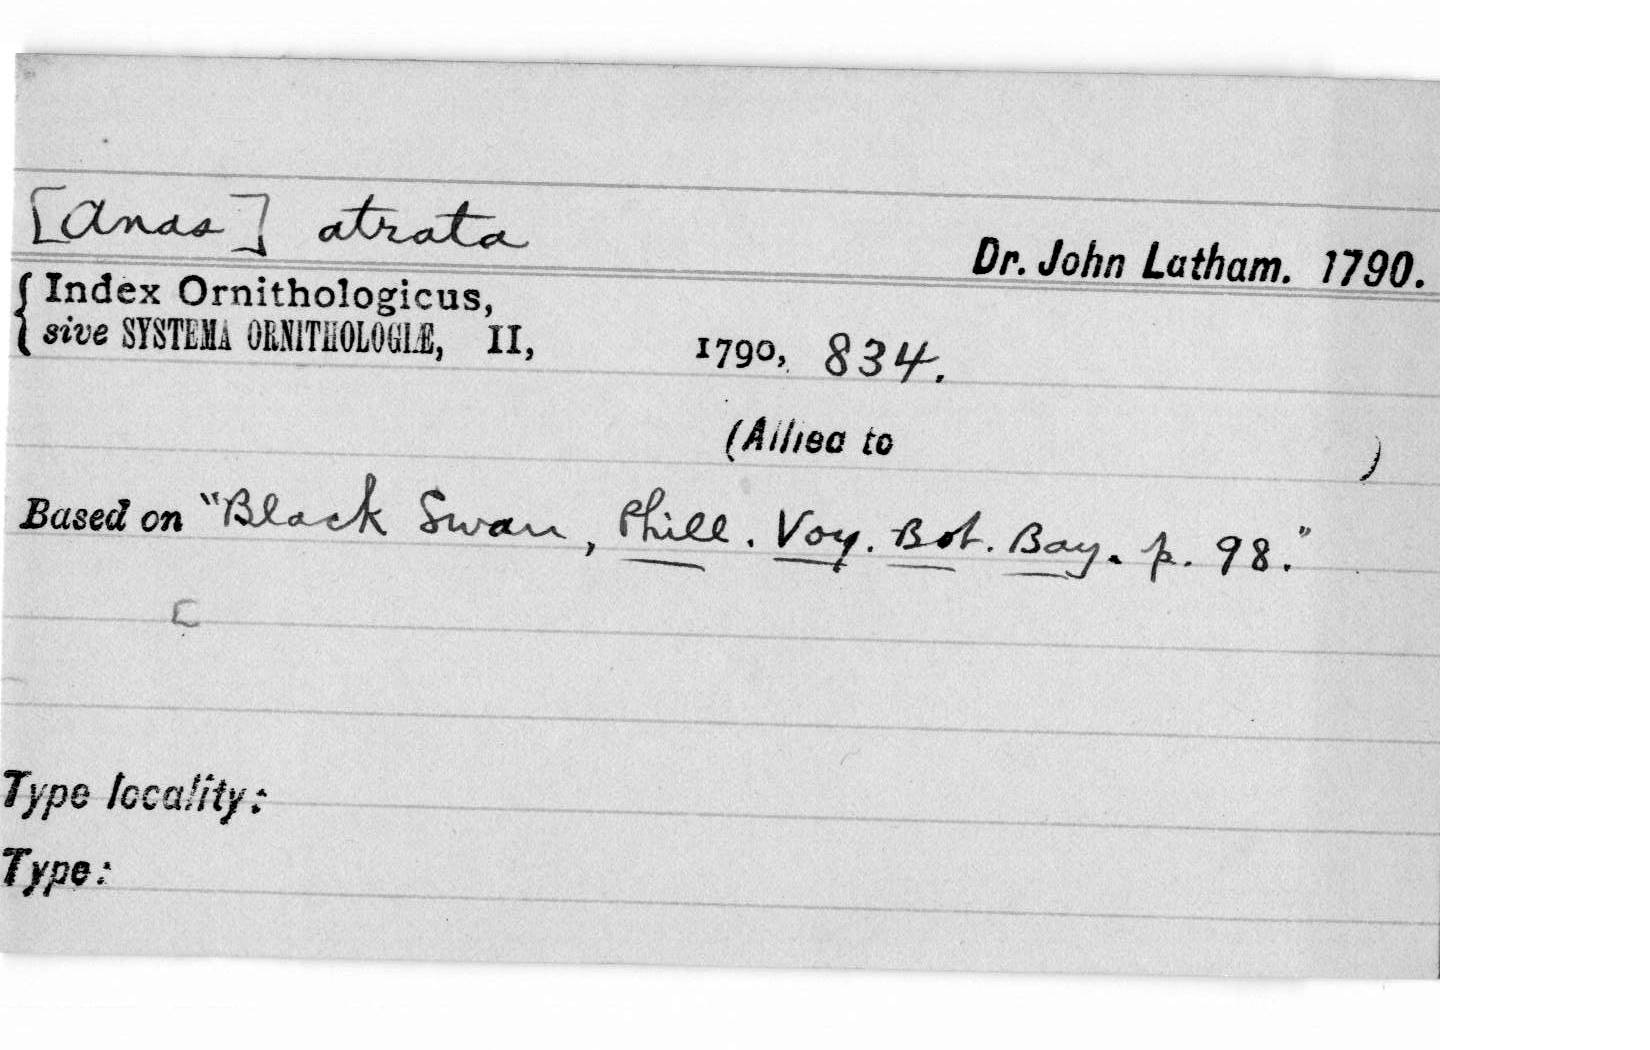 [Anas] atrata
Dr. John Latham. 1790.
Index Ornithologicus,
sive SYSTEMA ORNITHOLOGIÆ, II, 1790, 834.
(Allied to )
Based on "Black Swan, Phill. Voy. Bot. Bay. p. 98."
Type locality:
Type: